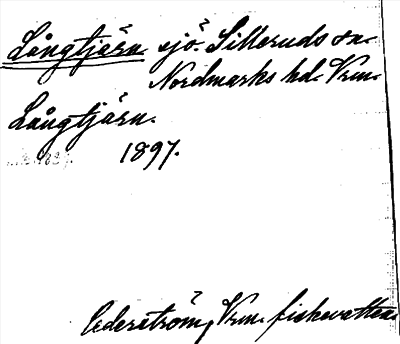 Långtjärn. sjö. Silleruds sn.
Nordmarks hd. Vrm.
Långtjärn.
1897.
Cederström, Vrm. fiskevatten.